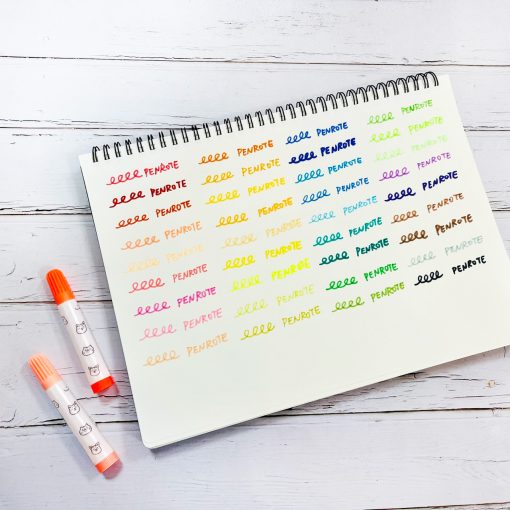 PENROTE PENROTE PENROTE PENROTE
PENROTE PENROTE PENROTE PENROTE
PENROTE PENROTE PENROTE PENROTE
PENROTE PENROTE PENROTE PENROTE
PENROTE PENROTE PENROTE PENROTE
PENROTE PENROTE PENROTE PENROTE
PENROTE PENROTE PENROTE PENROTE
PENROTE PENROTE PENROTE PENROTE
PENROTE PENROTE PENROTE PENROTE